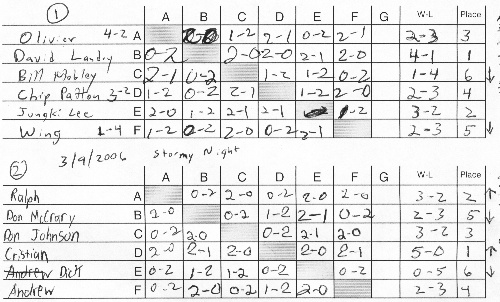 ① A B C D E F G W-L Place
Olivier 4-2 A 1-2 2-1 0-2 2-1 2-3 3
David Landry B 0-2 2-0 2-0 2-1 2-0 4-1 1
Bill Mobley C 2-1 0-2 1-2 1-2 0-2 1-4 6 ↓
Chip Patton 3-2 D 1-2 0-2 2-1 1-2 2-0 2-3 4
Jungki Lee E 2-0 1-2 2-1 2-1 1-2 3-2 2
Wing 1-4 F 1-2 0-2 2-0 0-2 2-1 2-3 5 ↓
② 3/9/2006 Stormy Night
A B C D E F G W-L Place
Ralph A 0-2 2-0 0-2 2-0 2-0 3-2 2 ↑
Don McCrary B 2-0 0-2 1-2 2-1 0-2 2-3 5 ↓
Don Johnson C 0-2 2-0 0-2 2-1 2-0 3-2 3
Cristian D 2-0 2-1 2-0 2-0 2-1 5-0 1 ↑
Andrew Dick E 0-2 1-2 1-2 0-2 0-2 0-5 6 ↓
Andrew F 0-2 2-0 0-2 1-2 2-0 2-3 4